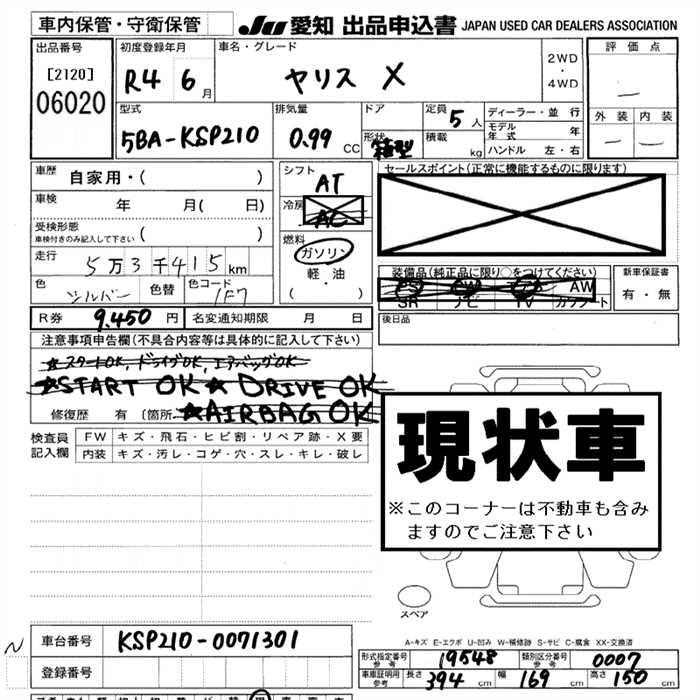 車内保管・守衛保管
JU 愛知 出品申込書 JAPAN USED CAR DEALERS ASSOCIATION
出品番号 初度登録年月 車名・グレード 評価点
[2120] R4 6月 ヤリス X 2WD・4WD
06020
外装 内装
型式 排気量 ドア 定員 5人 ディーラー・並行
5BA-KSP210 0.99 CC 形状 箱型 積載 kg モデル年式 年
ハンドル 左・右
車歴 自家用・( ) シフト AT セールスポイント(正常に機能するものに限ります)
車検 年 月( 日) 冷房 AC
受検形態
車検付きのみ記入して下さい ( ) 燃料 ガソリン
走行 5万3千415km 軽・油
色 シルバー 色替 色コード 1F7 ( ・ )
装備品(純正品に限り○をつけてください) 新車保証書
PS PW AW 有・無
SR ナビ TV ガソリート
R券 9,450円 名変通知期限 月 日 後日品
注意事項申告欄(不具合内容等は具体的に記入して下さい)
★スタートOK, ドライブOK, エアバッグOK
★START OK ★DRIVE OK
修復歴 有 〔箇所 ★AIRBAG OK
検査員 FW キズ・飛石・ヒビ割・リペア跡・X要
記入欄 内装 キズ・汚レ・コゲ・穴・スレ・キレ・破レ
現状車
※このコーナーは不動車も含み
ますのでご注意下さい
スペア
A-キズ E-エクボ U-凹み W-補修跡 S-サビ C-腐食 XX-交換済
N 車台番号 KSP210-0071301
形式指定番号 参考 19548 類別区分番号 参考 0007
登録番号
車庫証明用 参考 長さ 394 cm 幅 169 cm 高さ 150 cm